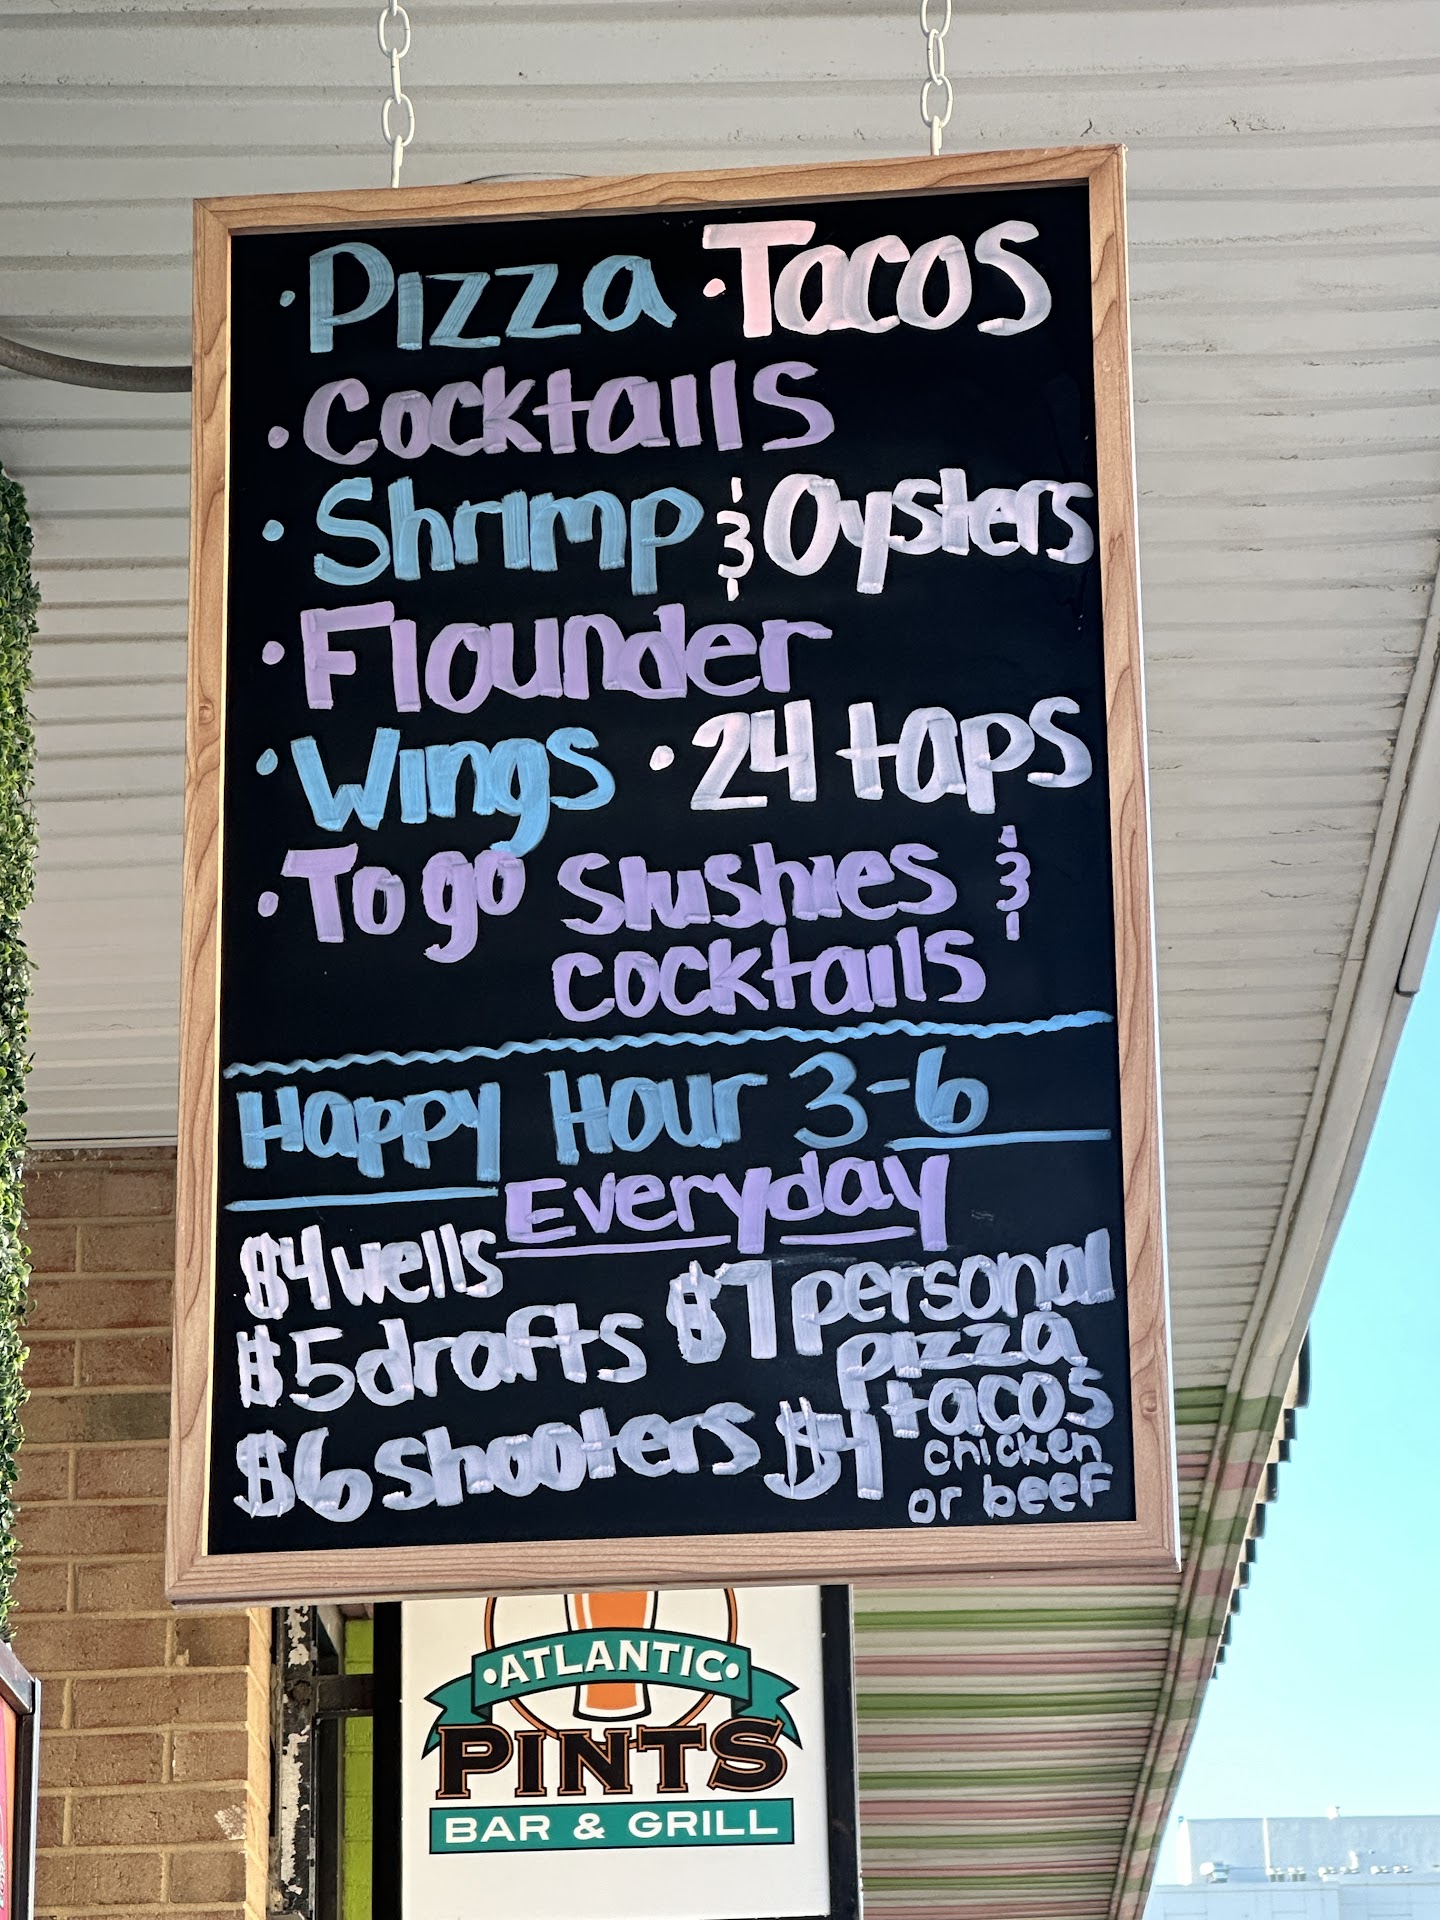 · Pizza · Tacos
· Cocktails
· Shrimp & Oysters
· Flounder
· Wings · 24 taps
· To go Slushies &
cocktails
Happy Hour 3-6
Everyday
$4 wells
$5 drafts
$6 shooters
$7 personal
pizza
$4 tacos
chicken
or beef
·ATLANTIC·
PINTS
BAR & GRILL